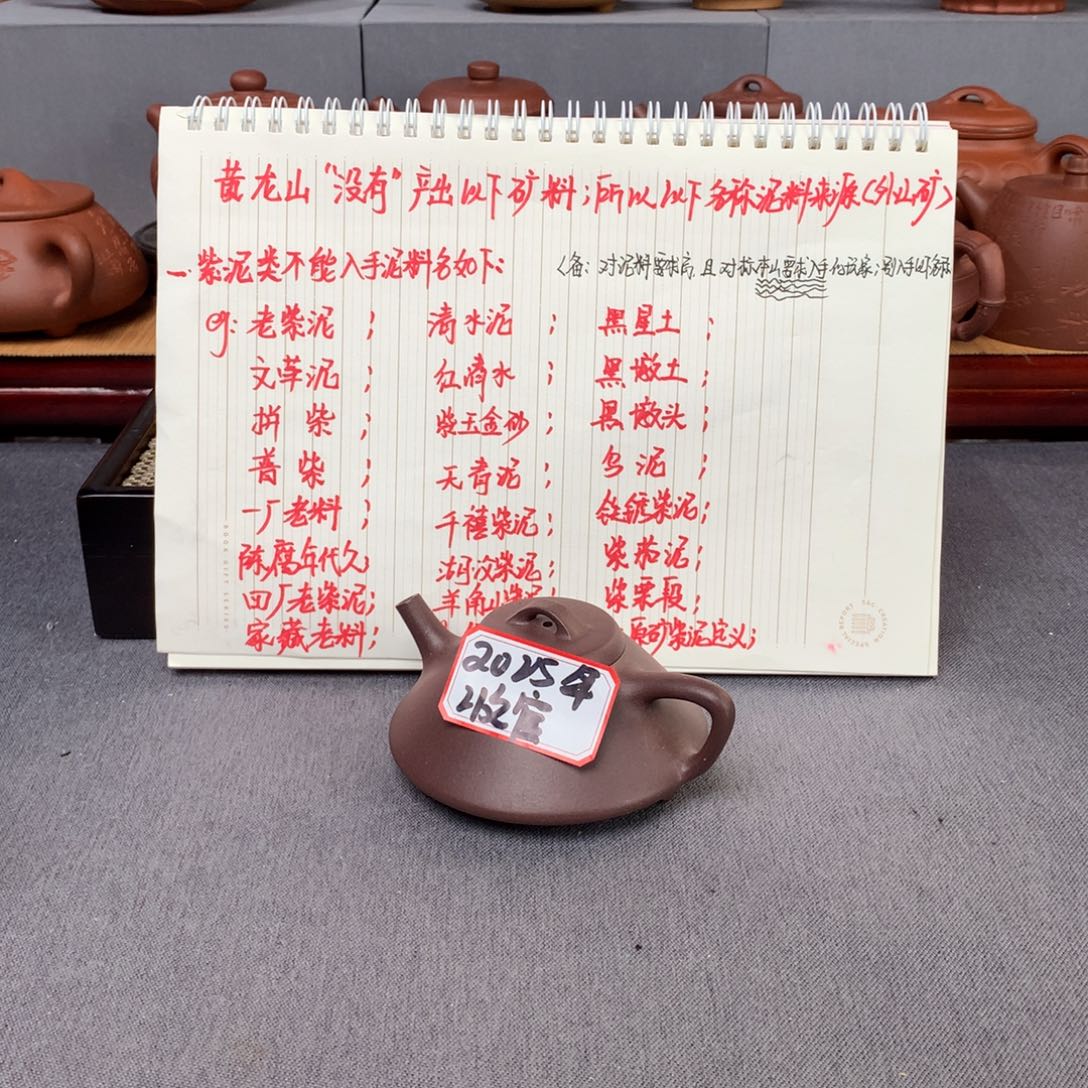 黄龙山“没有”产出以下矿料；所以以下名称泥料来源（外山矿）
一.紫泥类不能入手泥料名如下：
（备：对泥料要求高，且对标本山要求入手的玩家；别入手以下名称
eg：老紫泥； 清水泥； 黑星土；
文革泥； 红清水； 黑墩土；
拼紫； 紫玉金砂； 黑墩头；
普紫； 天青泥； 乌泥；
一厂老料； 千禧紫泥； 铁锈紫泥；
陈腐年代久； 湖㳇紫泥； 紫茄泥；
四厂老紫泥； 羊角山紫泥 紫栗段；
家藏老料； 原矿紫泥定义；
2025年
BOOK GIFT SERIES